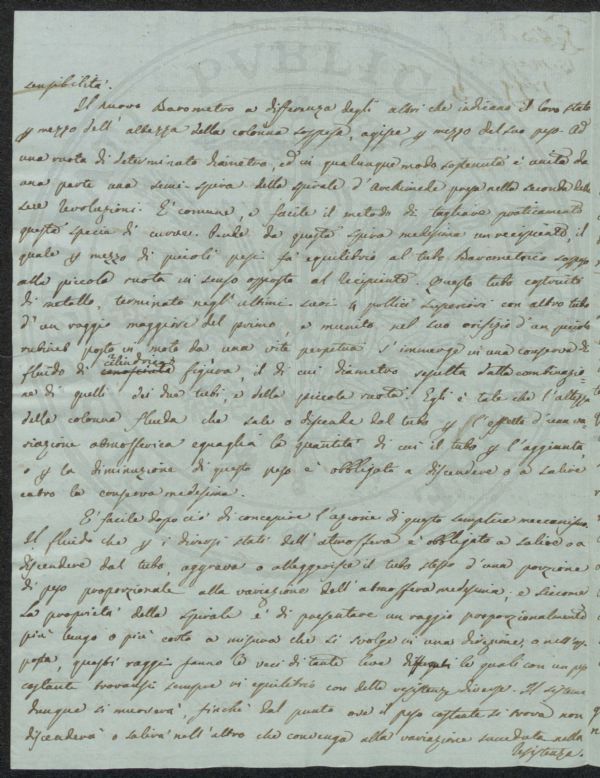 sensibilità.
Il nuovo Barometro a differenza degli altri che indicano il loro stato
p mezzo dell' altezza della colonna sospesa, agisce p mezzo del suo peso. Ad
una ruota di determinato diametro, ed in qualunque modo sostenuta è unita da
una parte una semi-spira della spirale d' Archimede presa nella seconda delle
sue revoluzioni. E' comune, e facile il metodo di tagliare praticamente
questa specie di curve. Pende da questa spira medesima un recipiente, il
quale p mezzo di piccoli pesi fa equilibrio al tubo Barometrico sospeso
alla piccola ruota in senso opposto al recipiente. Questo tubo costruito
di metallo, terminato negl' ultimi suoi 4 pollici superiori con altro tubo
d' un raggio maggiore del primo, e munito nel suo orifizio d' un piccolo
rubinet posto in moto da una vite perpetua s' immerge in una conserva di
cilindrica
fluido di figura, il di cui diametro resulta dalla combinazio-
ne di quelli dei due tubi, e della piccola ruota. Egli è tale che l' altezza
della colonna fluida che sale o discende dal tubo p l' effetto d' una va-
riazione atmosferica eguaglia la quantità di cui il tubo p l' aggiunta
o p la diminuzione di questo peso è obbligato a discendere o a salire
entro la conserva medesima.
E' facile dopo ciò di concepire l' azione di questo semplice meccanismo.
Il fluido che p i diversi stati dell' atmosfera è obbligato a salire o a
discendere dal tubo, aggrava o alleggerisce il tubo stesso d' una porzione
di peso proporzionale alla variazione dell' atmosfera medesima, e siccome
la proprietà della spirale è di presentare un raggio proporzionalmente
più lungo o più corto a misura che si svolge in una direzione, o nell' op-
posta, questi raggi fanno le veci di tante leve le quali con un peso
costante trovansi sempre in equilibrio con delle resistenze diverse. Il sistema
dunque si muoverà, finchè dal punto ove il peso costante si trova non
discenderà o salirà nell' altro che convenga alla variazione succeduta nella
resistenza.